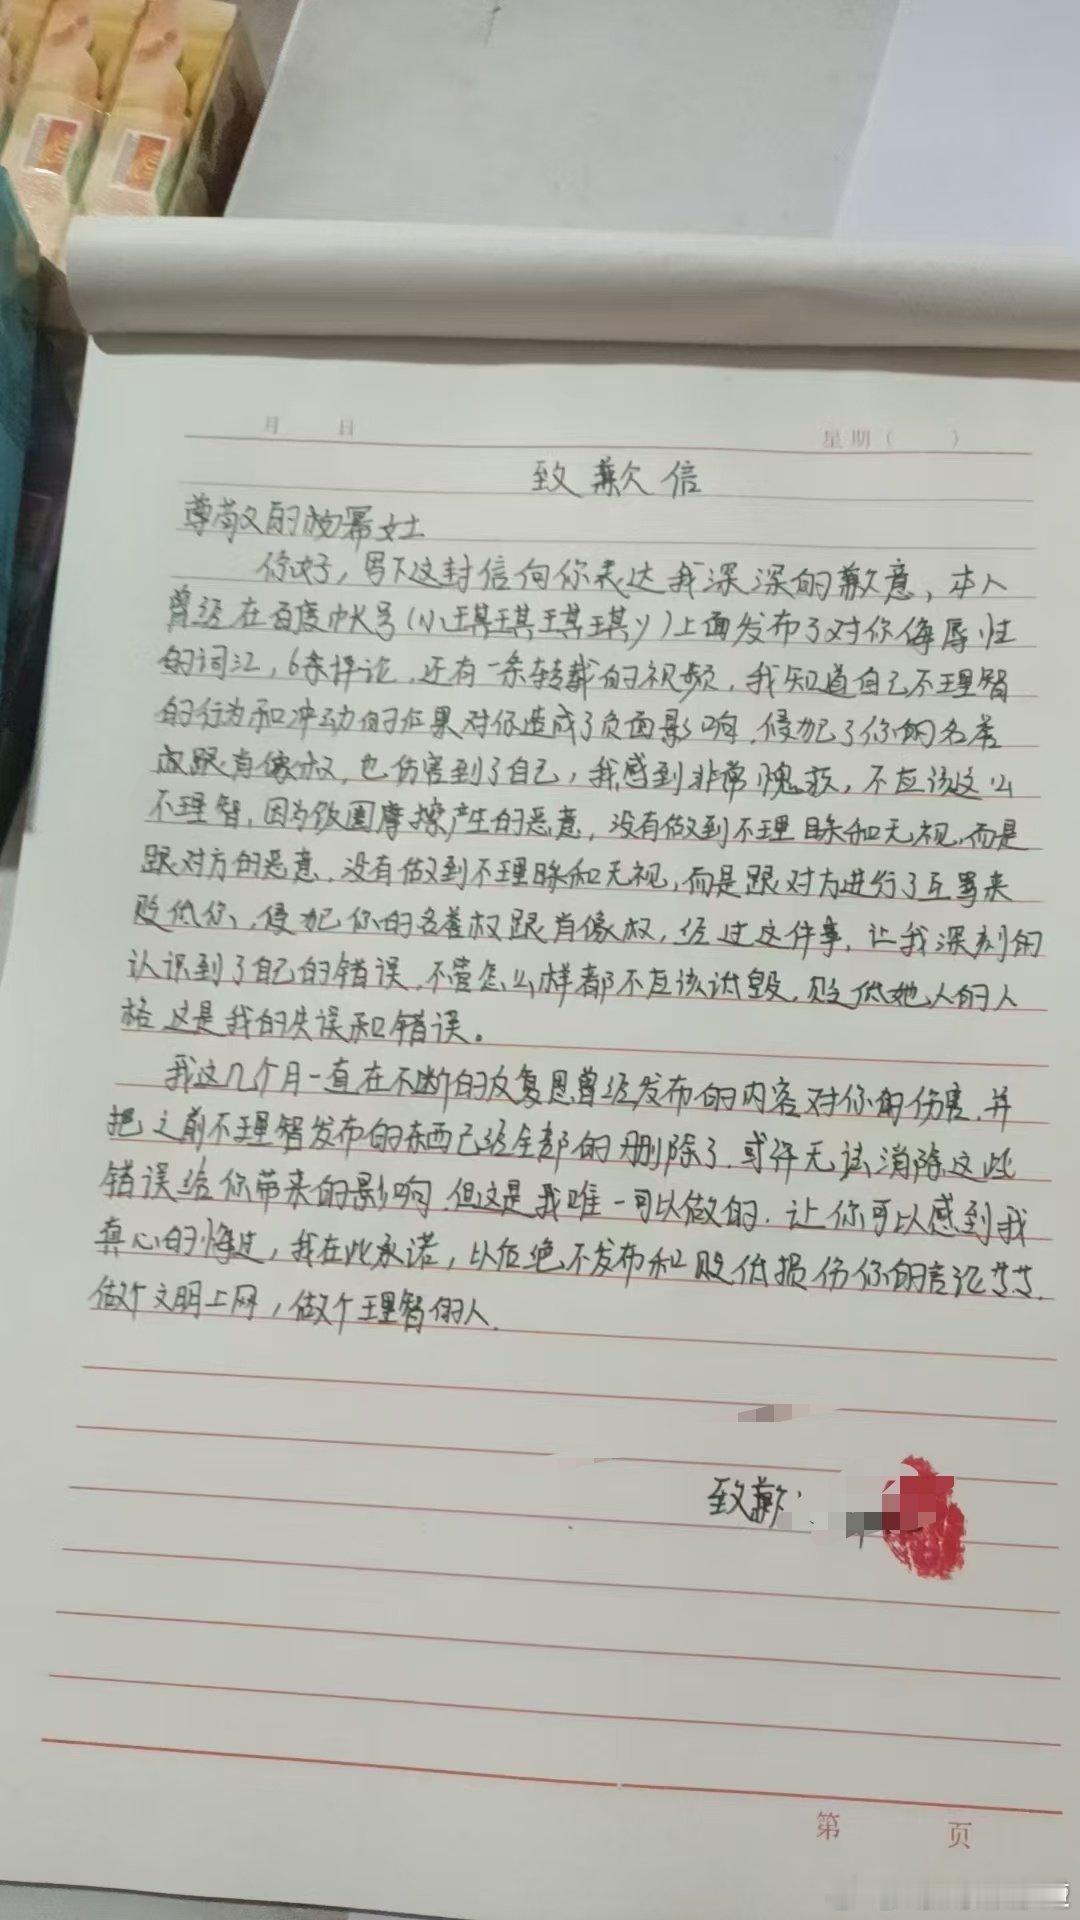 月 日 星期( )
致歉信
尊敬的杨幂女士
你好，写下这封信向你表达我深深的歉意，本人
曾经在百度帐号(小琪琪琪琪y)上面发布了对你侮辱性
的词汇，6条评论，还有一条转载的视频，我知道自己不理智
的行为和冲动的后果对你造成了负面影响，侵犯了你的名誉
权跟肖像权，也伤害到了自己，我感到非常愧疚，不应该这么
不理智，因为饭圈摩擦产生的恶意，没有做到不理睬和无视，而是
跟对方的恶意，没有做到不理睬和无视，而是跟对方进行了互骂来
贬低你，侵犯你的名誉权跟肖像权，经过这件事，让我深刻的
认识到了自己的错误，不管怎么样都不应该诋毁，贬低她人的人
格这是我的失误和错误。
我这几个月一直在不断的反复思曾经发布的内容对你的伤害，并
把之前不理智发布的东西已经全部的删除了，或许无法消除这些
错误给你带来的影响，但这是我唯一可以做的，让你可以感到我
真心的悔过，我在此承诺，以后绝不发布和贬低损伤你的言论
做个文明上网，做个理智的人.
致歉：
第 页